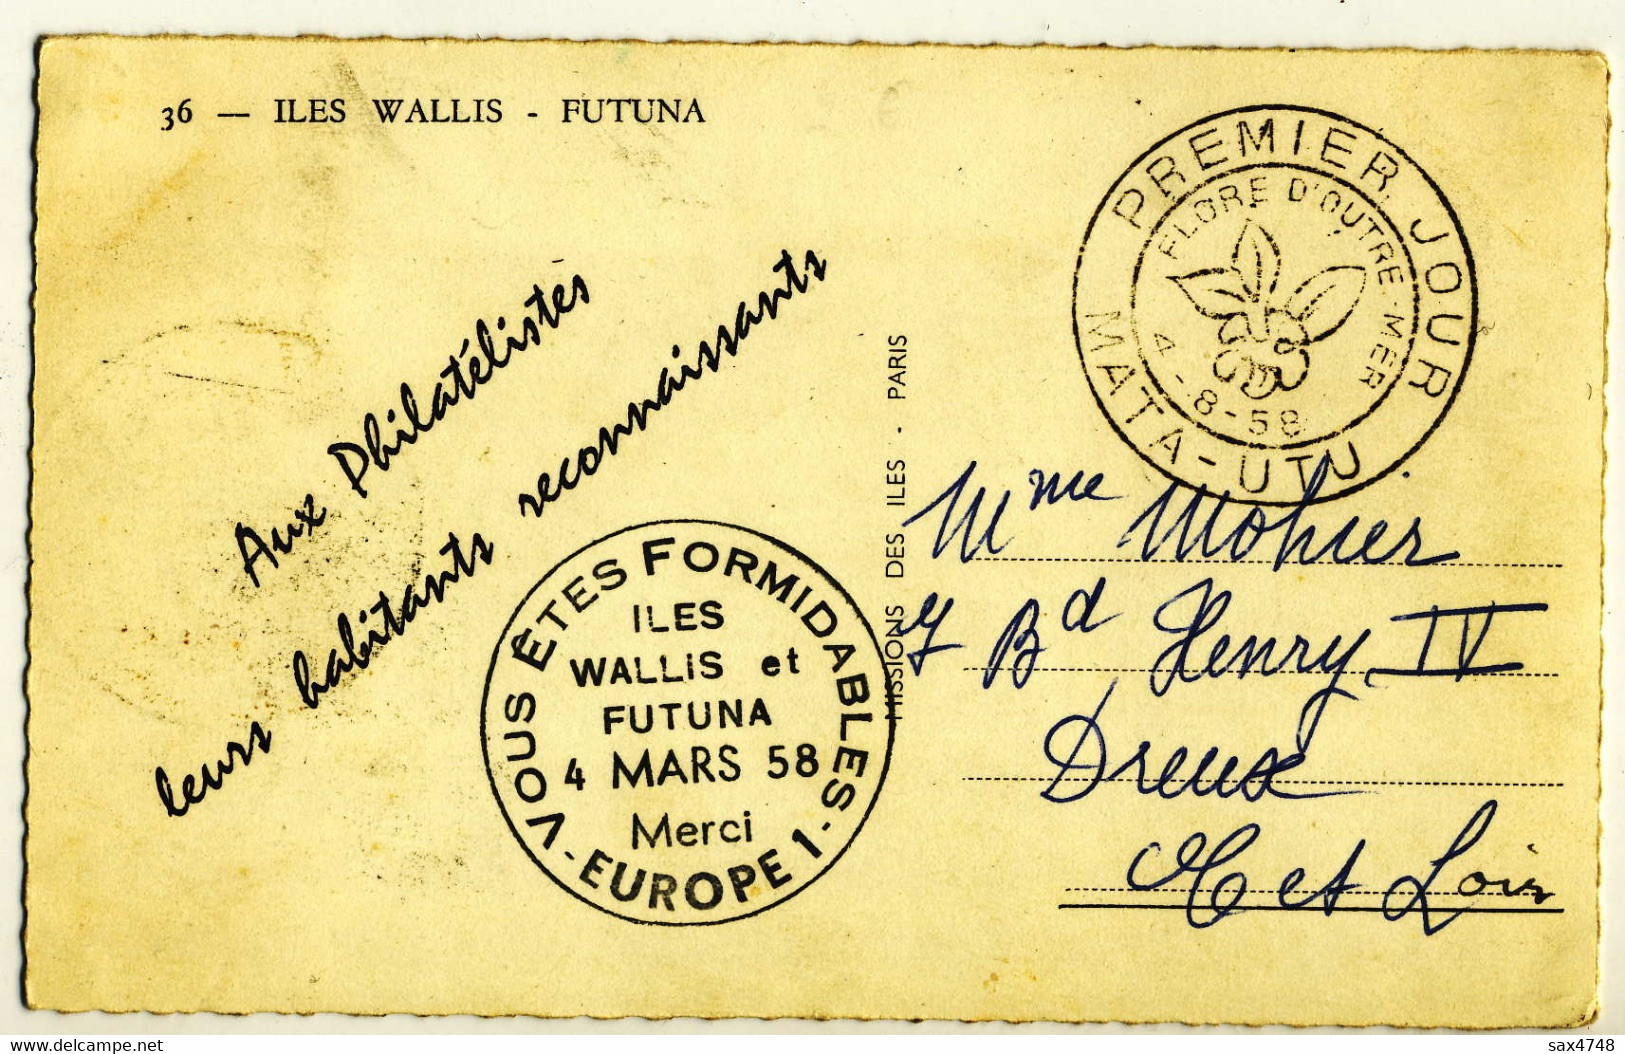 36 — ILES WALLIS - FUTUNA
Aux Philatélistes
leurs habitants reconnaissants
VOUS ÊTES FORMIDABLES.
ILES
WALLIS et
FUTUNA
4 MARS 58
Merci
- EUROPE 1.
MISSIONS DES ILES - PARIS
PREMIER JOUR
FLORE D'OUTRE-MER
4-8-58
MATA-UTU
Mme Mohier
7 Bd Henry IV
Dreux
et Loir
www.delcampe.net
sax4748